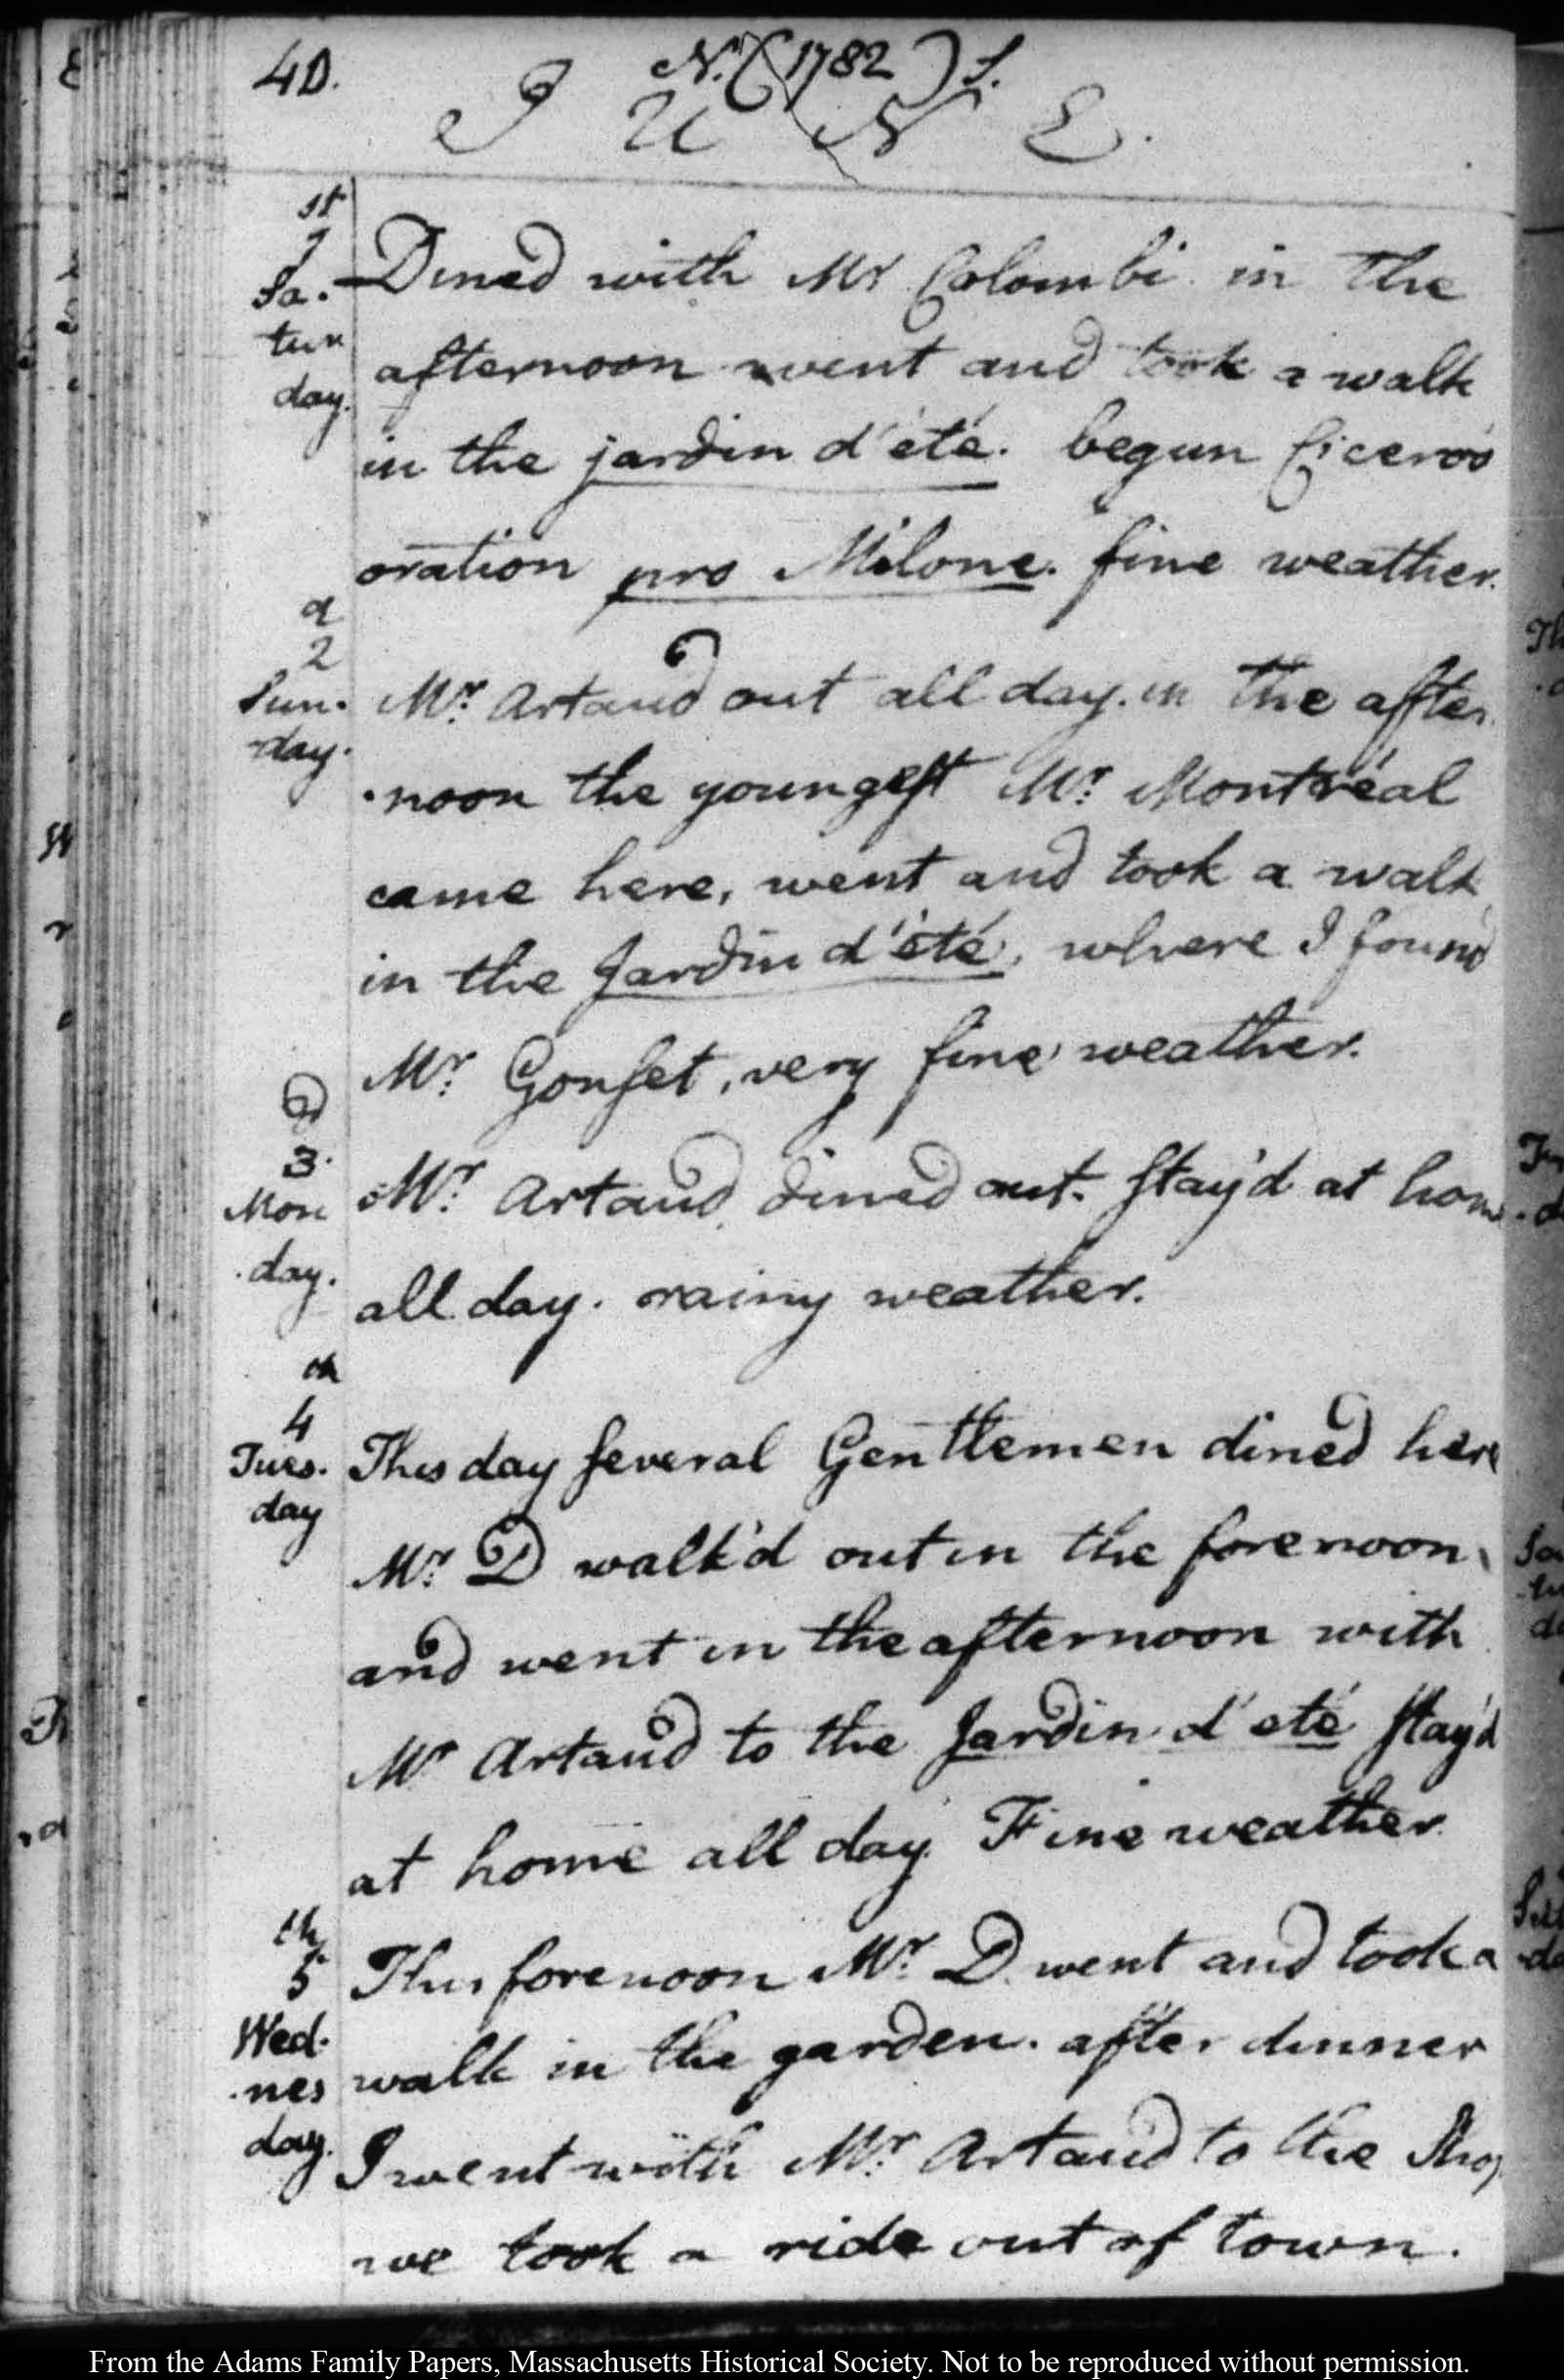 40.
N. (1782) S.
J U N E.
st
1
Sa.
tur
day.
Dined with Mr Colombi in the
afternoon went and took a walk
in the jardin d'été. begun Cicero's
oration pro Milone. fine weather.
d
2
Sun.
day.
Mr. Artaud out all day. in the after
noon the youngest Mr. Montréal
came here, went and took a walk
in the Jardin d'été, where I found
Mr. Gonset, very fine weather.
d
3.
Mon
day.
Mr. Artaud dined out. Stay'd at home
all day. rainy weather.
th
4
Tues.
day
This day several Gentlemen dined here
Mr. D walk'd out in the forenoon,
and went in the afternoon with
Mr Artaud to the Jardin d'eté Stay'd
at home all day. Fine weather.
th
5
Wed.
nes
day.
This forenoon Mr. D. went and took a
walk in the garden. after dinner
I went with Mr. Artaud to the Shop
we took a ride out of town.
From the Adams Family Papers, Massachusetts Historical Society. Not to be reproduced without permission.